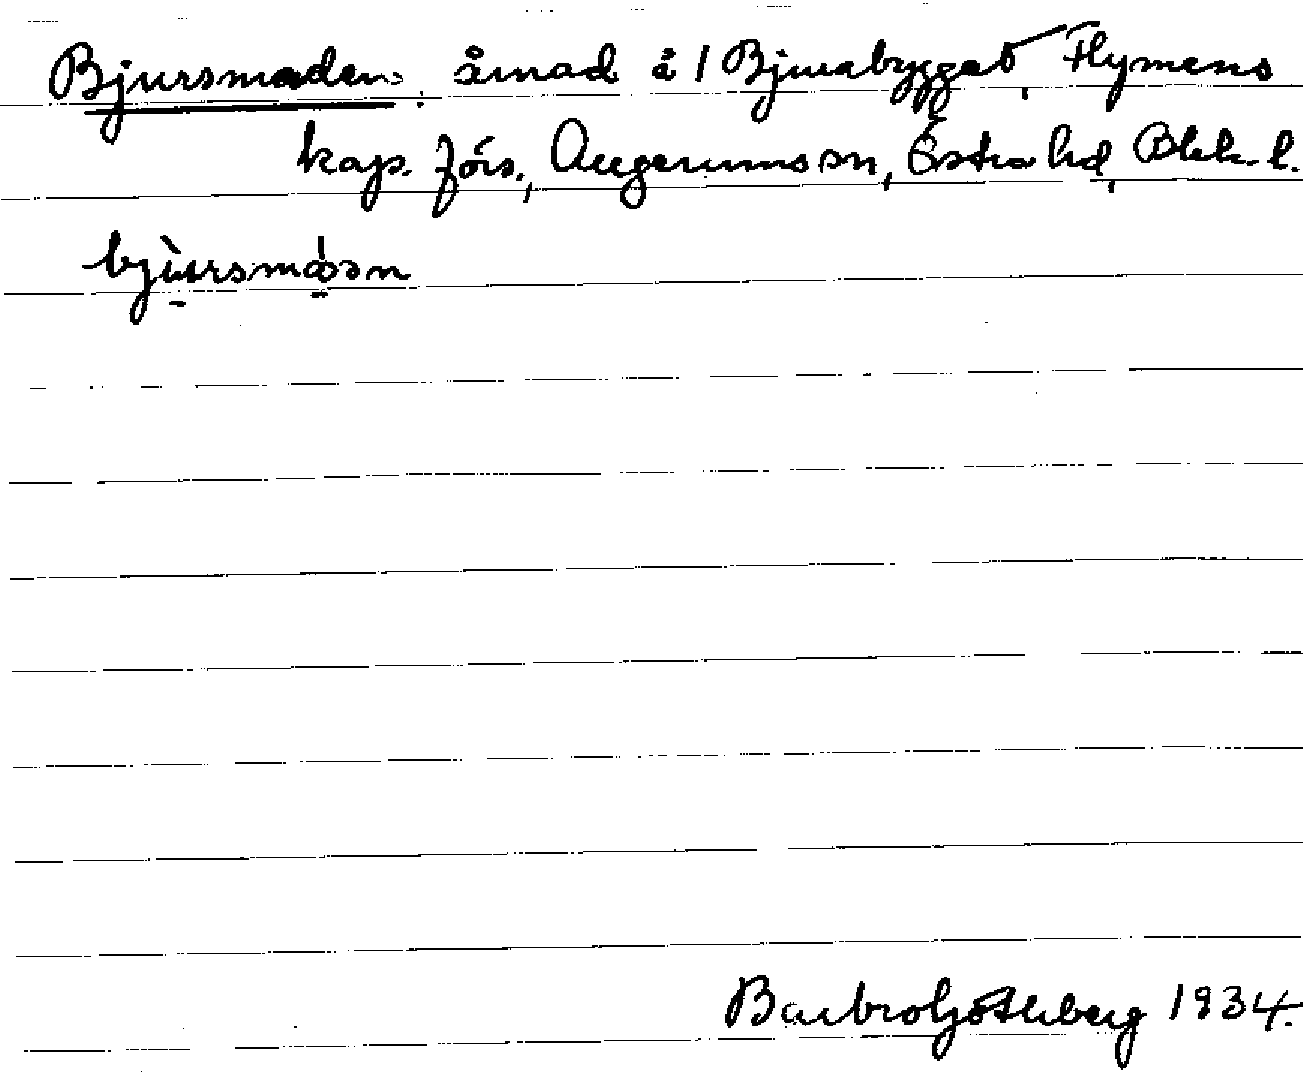 Bjursmaden: åmad å 1 Bjurabygget, Flymens
kap. förs., Augerums sn, Östra hd, Blek. l.
Barbro Götheberg 1934.